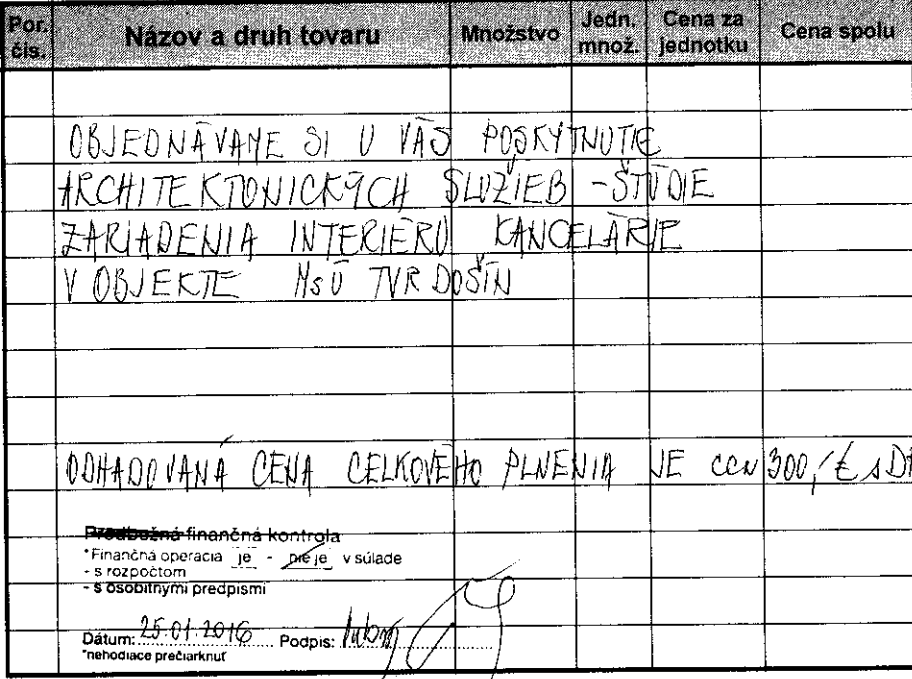 Por. čís. Názov a druh tovaru Množstvo Jedn. množ. Cena za jednotku Cena spolu
OBJEDNÁVAME SI U VÁS POSKYTNUTIE
ARCHITEKTONICKÝCH SLUŽIEB - ŠTÚDIE
ZARIADENIA INTERIÉRU KANCELÁRIE
V OBJEKTE MsÚ TVRDOŠÍN
ODHADOVANÁ CENA CELKOVÉHO PLNENIA JE CCA 300,-€ s
Predbežná finančná kontrola
*Finančná operacia je - nie je v súlade
- s rozpočtom
- s osobitnými predpismi
Dátum: 25.01.2016 Podpis:
*nehodiace prečiarknuť